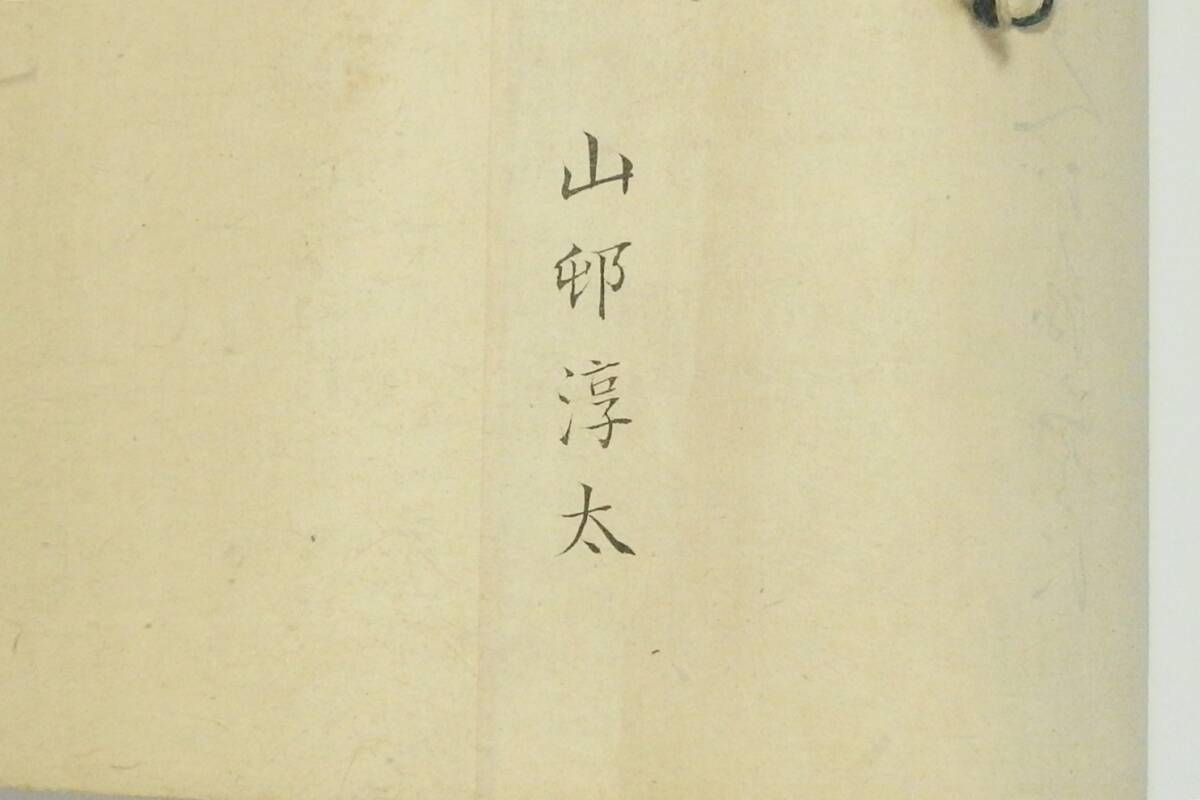 山邨淳太